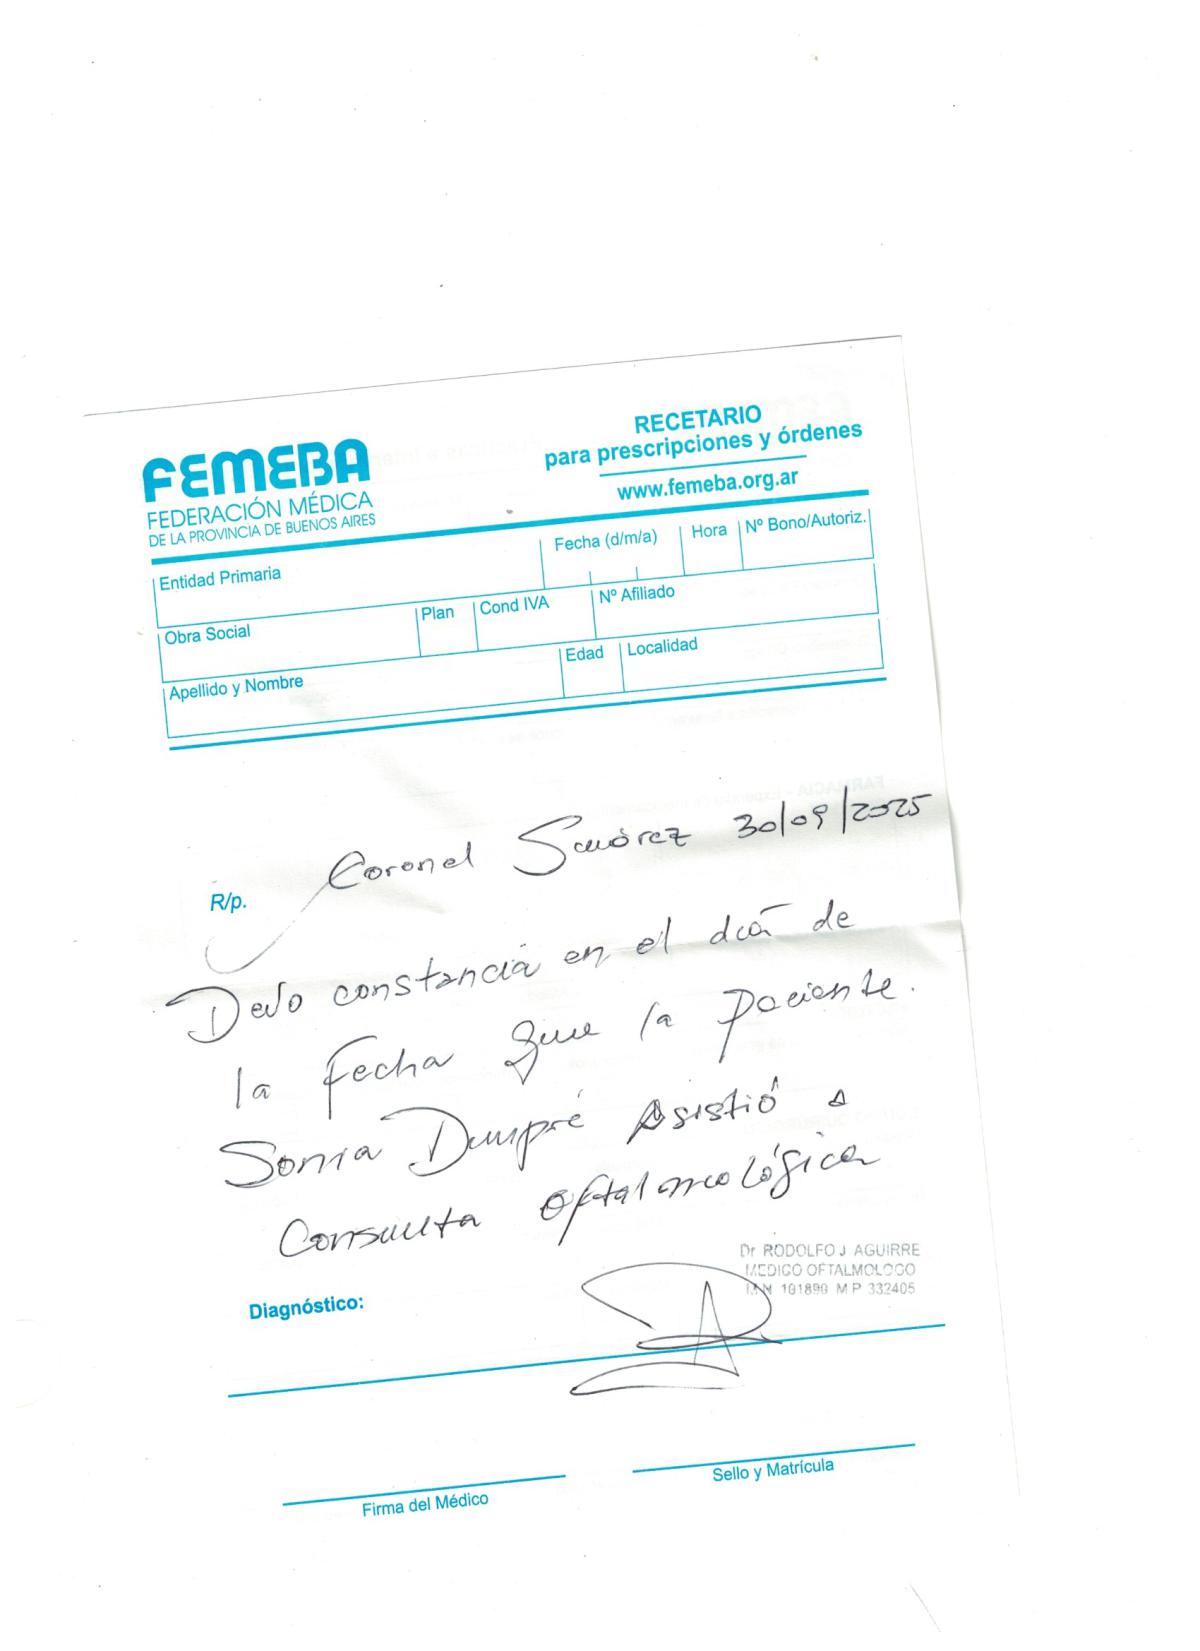 FEMEBA
FEDERACIÓN MÉDICA
DE LA PROVINCIA DE BUENOS AIRES
RECETARIO
para prescripciones y órdenes
www.femeba.org.ar
Entidad Primaria
Fecha (d/m/a)
Hora
Nº Bono/Autoriz.
Obra Social
Plan
Cond IVA
Nº Afiliado
Apellido y Nombre
Edad
Localidad
Coronel Suárez 30/09/2025
R/p.
Dejo constancia en el día de
la Fecha que la Paciente.
Sonia Dumpré Asistió a
Consulta oftalmológica
Dr RODOLFO J AGUIRRE
MEDICO OFTALMOLOGO
M N 101890 M P 332405
Diagnóstico:
Firma del Médico
Sello y Matrícula